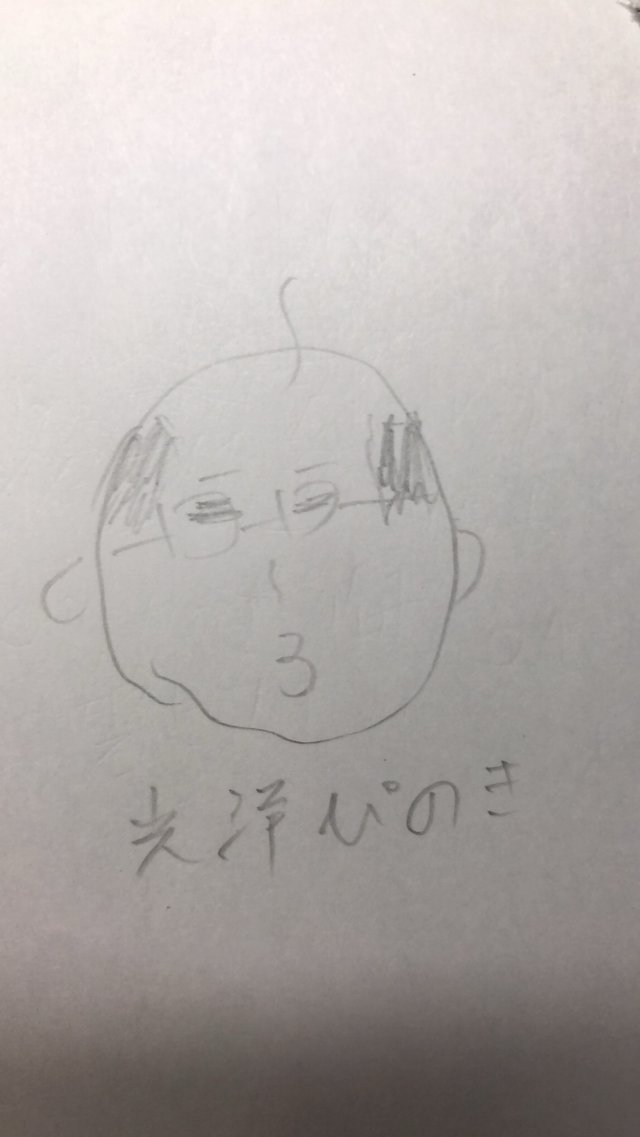 光洋ぴのき